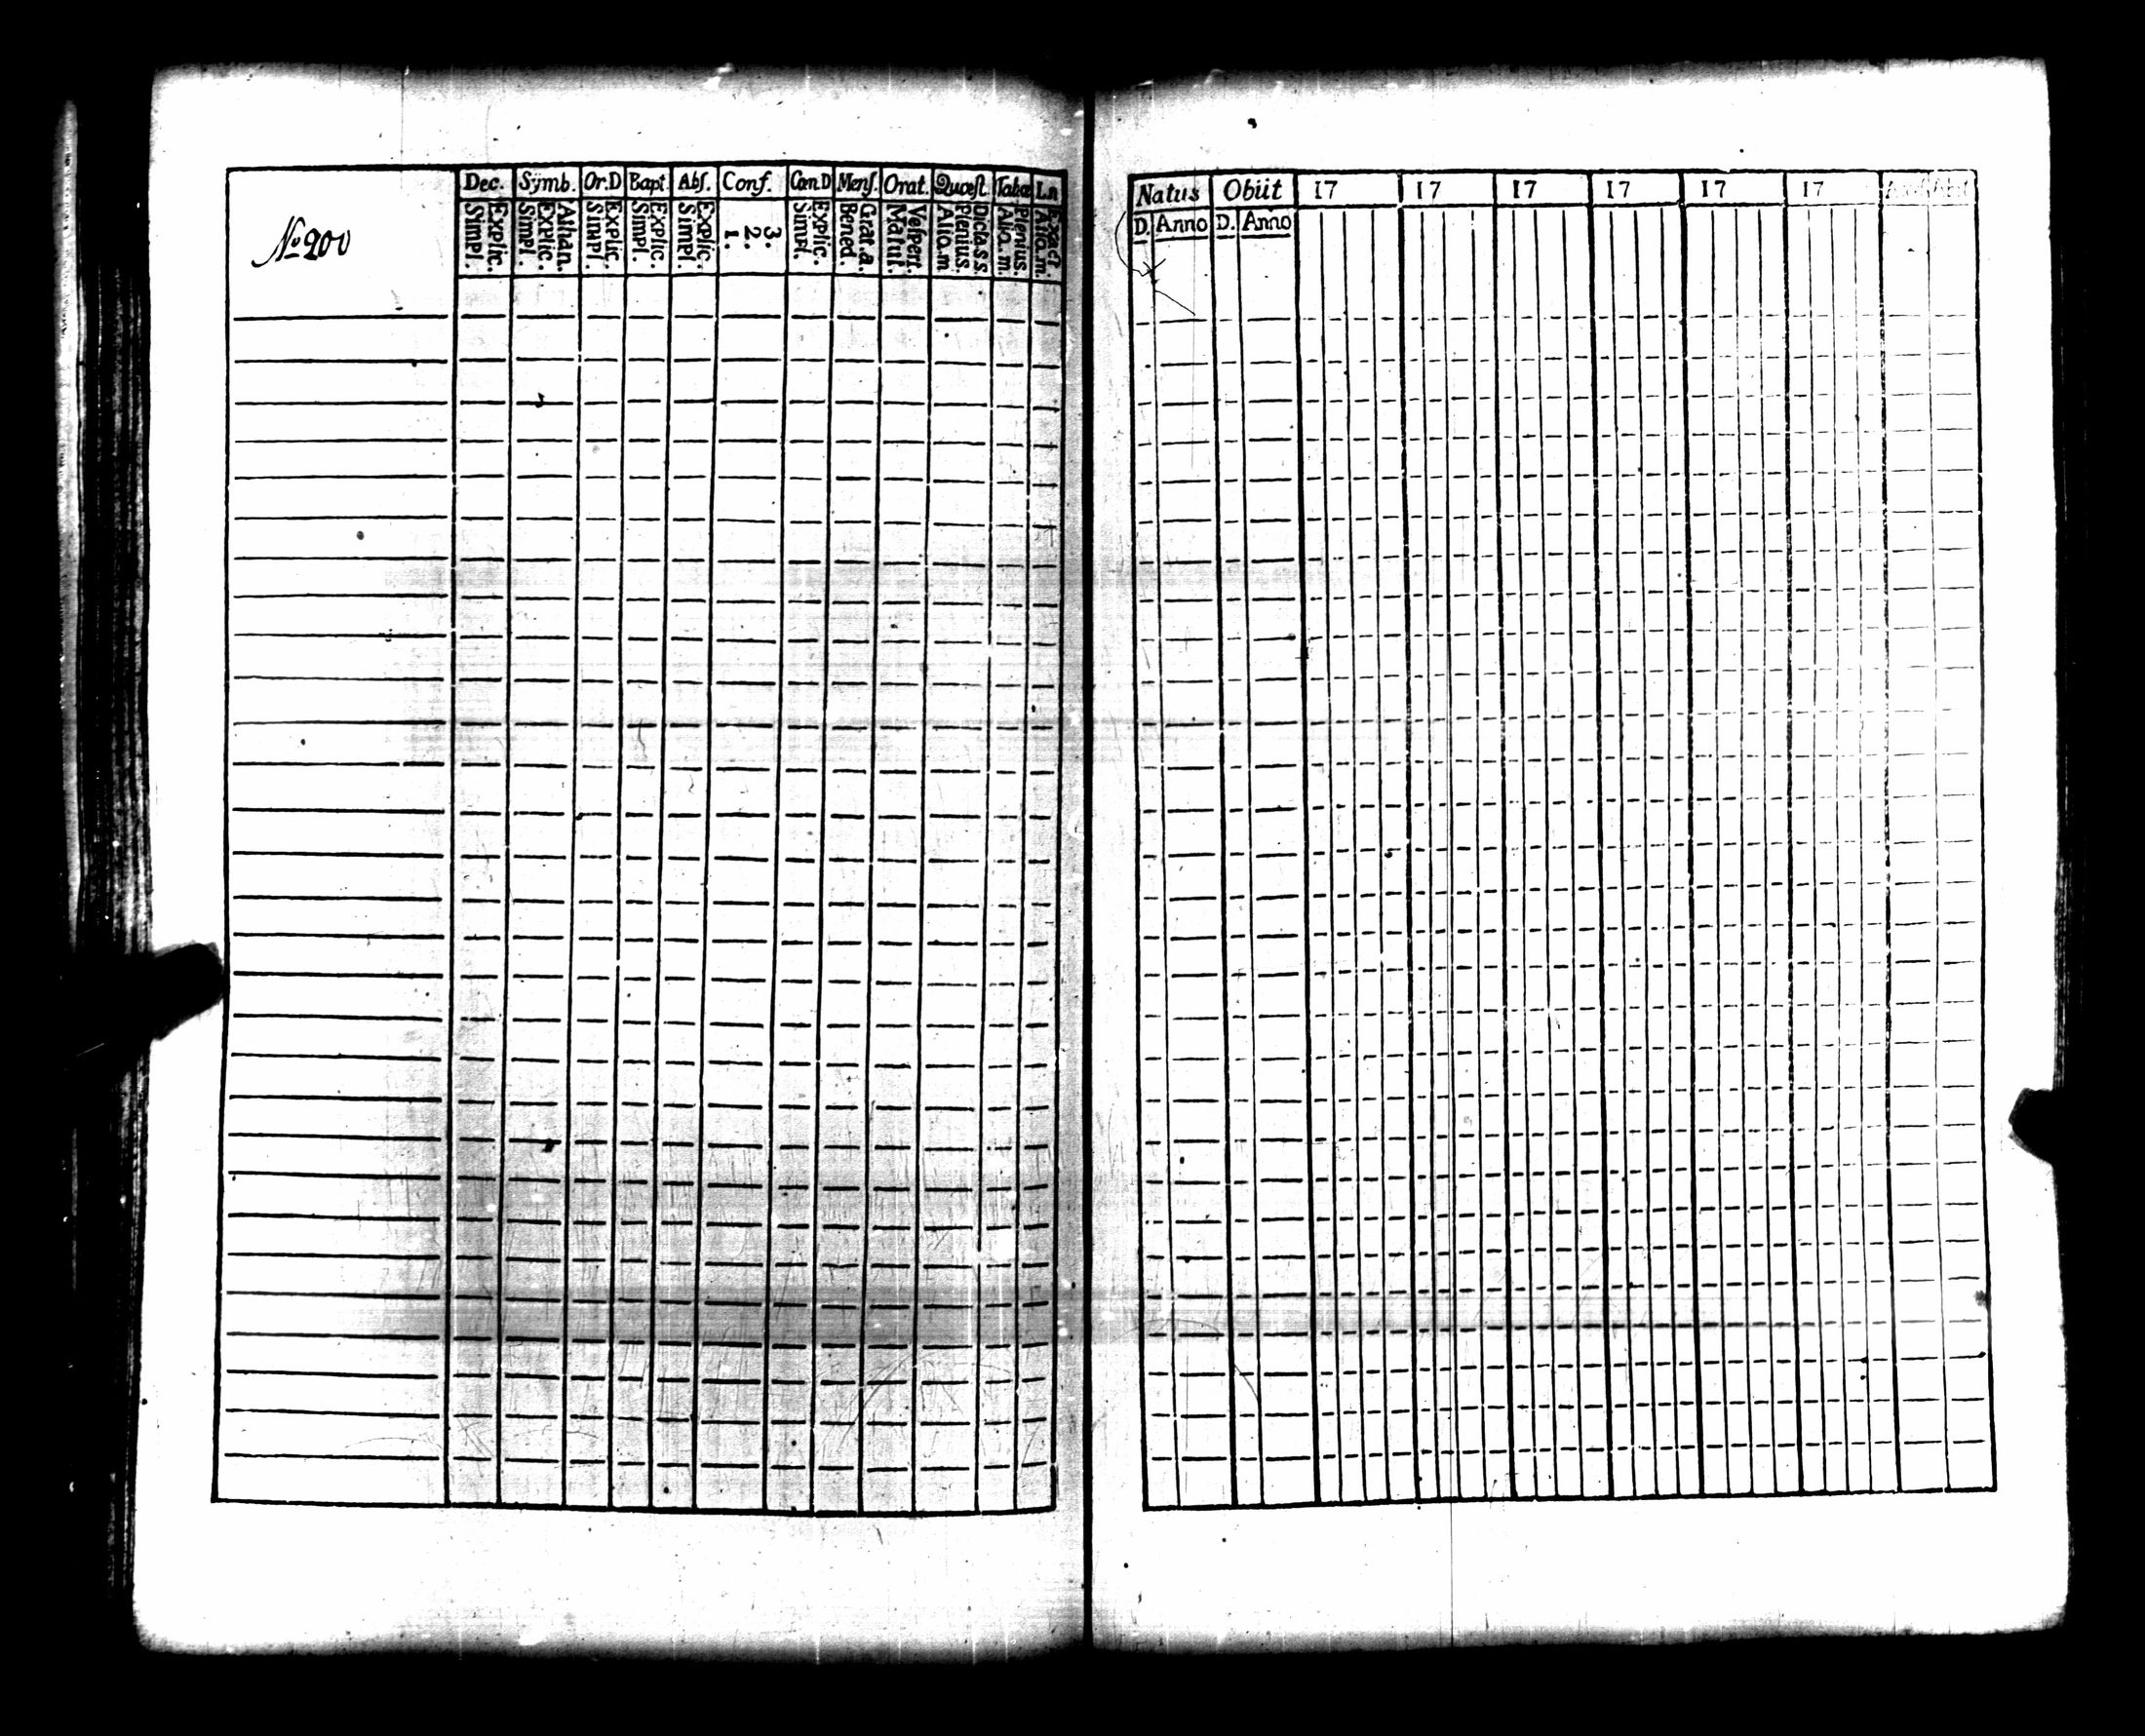 Dec. Symb. Or.D Bapt. Abs. Conf. Can.D Mens. Orat. Quæst. Tabæ Ln
Nº 200
Explic. Simpl.
Athan. Explic. Simpl.
Explic. Simpl.
Explic. Simpl.
Explic. Simpl.
3. 2. 1.
Explic. Simpl.
Grat.a. Bened.
Vespert. Matut.
Dicta s s. Plenius. Alia.m
Plenius. Alia.m.
Exact. Alia.m.
Natus Obiit 17 17 17 17 17 17
D. Anno D. Anno